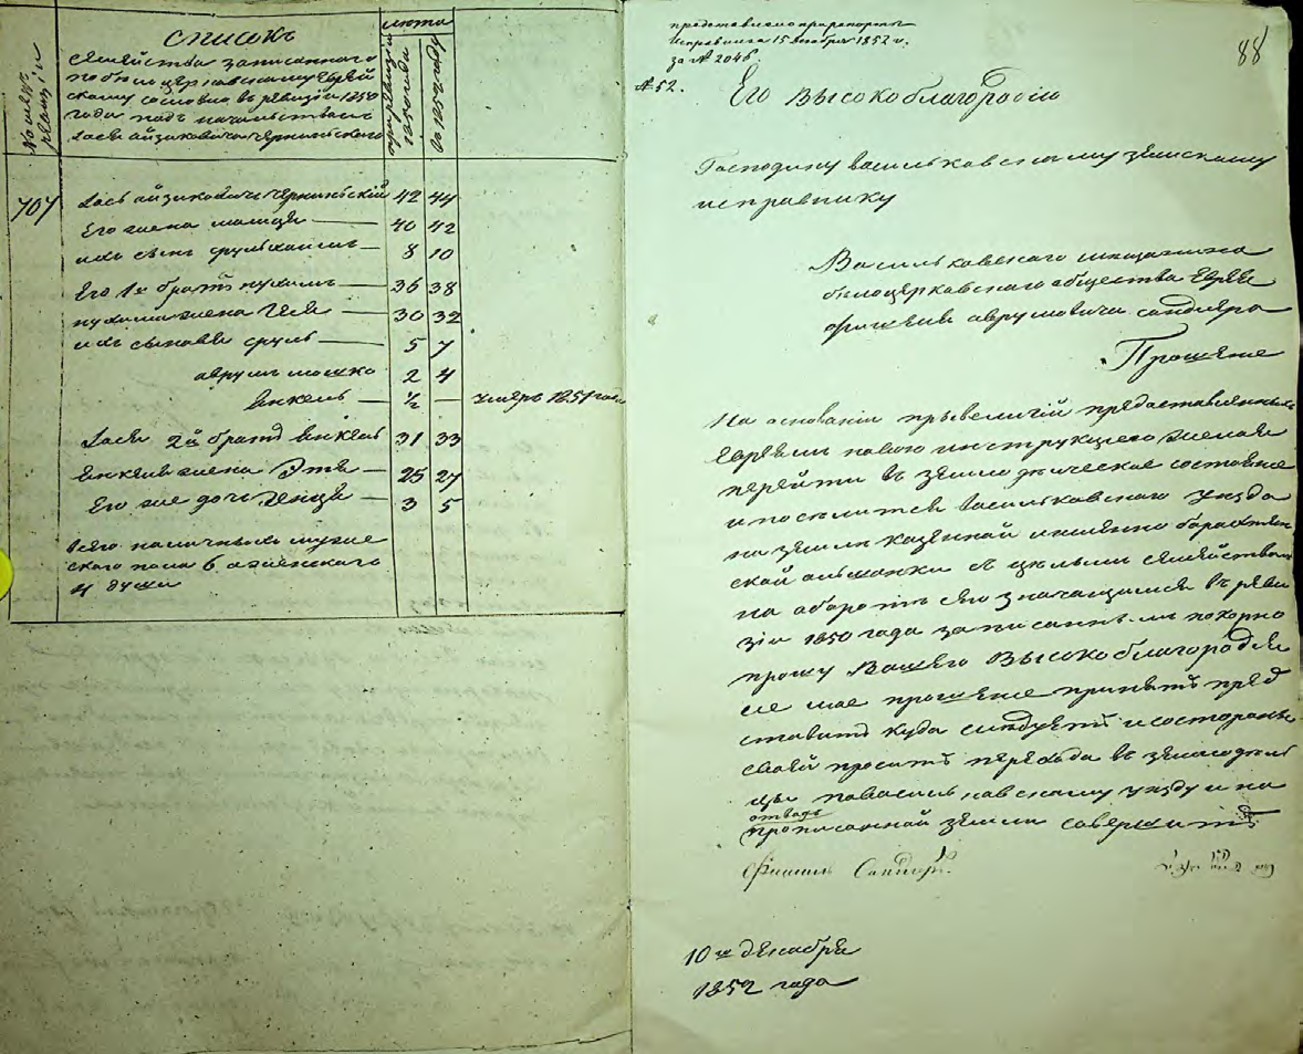 Списокъ
семейства записаннаго
по белоцерковскому еврей
скому сословію въ ревизіи 1850
года подъ начальствомъ
Іося Айзиковича Чернинскаго
№ по
ревизіи
лета
по ревизіи
1850 года
707 Іось Айзиковичъ Чернинскій 42 44
Его жена 40 42
ихъ сынъ Срульхаимъ 8 10
Его 1й братъ Нухимъ 36 38
Нухима жена Геня 30 32
ихъ сыновья Сруль 5 7
Аврумъ Мошко 2 4
Янкель ½ — умеръ 1851 года
Іося 2й братъ Янкель 31 33
Янкеля жена Этя 25 27
Его же дочь 3 5
Всего наличныхъ муже
скаго пола 6 а женскаго
4 души
представлено при рапорте
Исправника 15 декабря 1852 г.
за № 2046
88
№ 52.
Его Высокоблагородію
Господину Васильковскому земскому
исправнику
Васильковскаго мещанина
белоцерковскаго общества Еврея
Фишеля Аврумовича Сандлера
Прошеніе
На основаніи привелигій предоставленныхъ
Евреямъ новою инструкціею желая
перейти въ земледелческое состояніе
и поселится Васильковскаго уезда
на земли казенной имянно
ской съ целымъ семействомъ
на обороте сего значащимся въ реви
зіи 1850 года записаннымъ покорно
прошу Вашего Высокоблагородія
сіе мое прошеніе принять пред
ставить куда следуетъ и состороны
своей просить перехода въ земледель
цы по Васильковскому уезду и на
отводъ
прописанной земли совершить
Фишель Сандлеръ.
10го декабря
1852 года